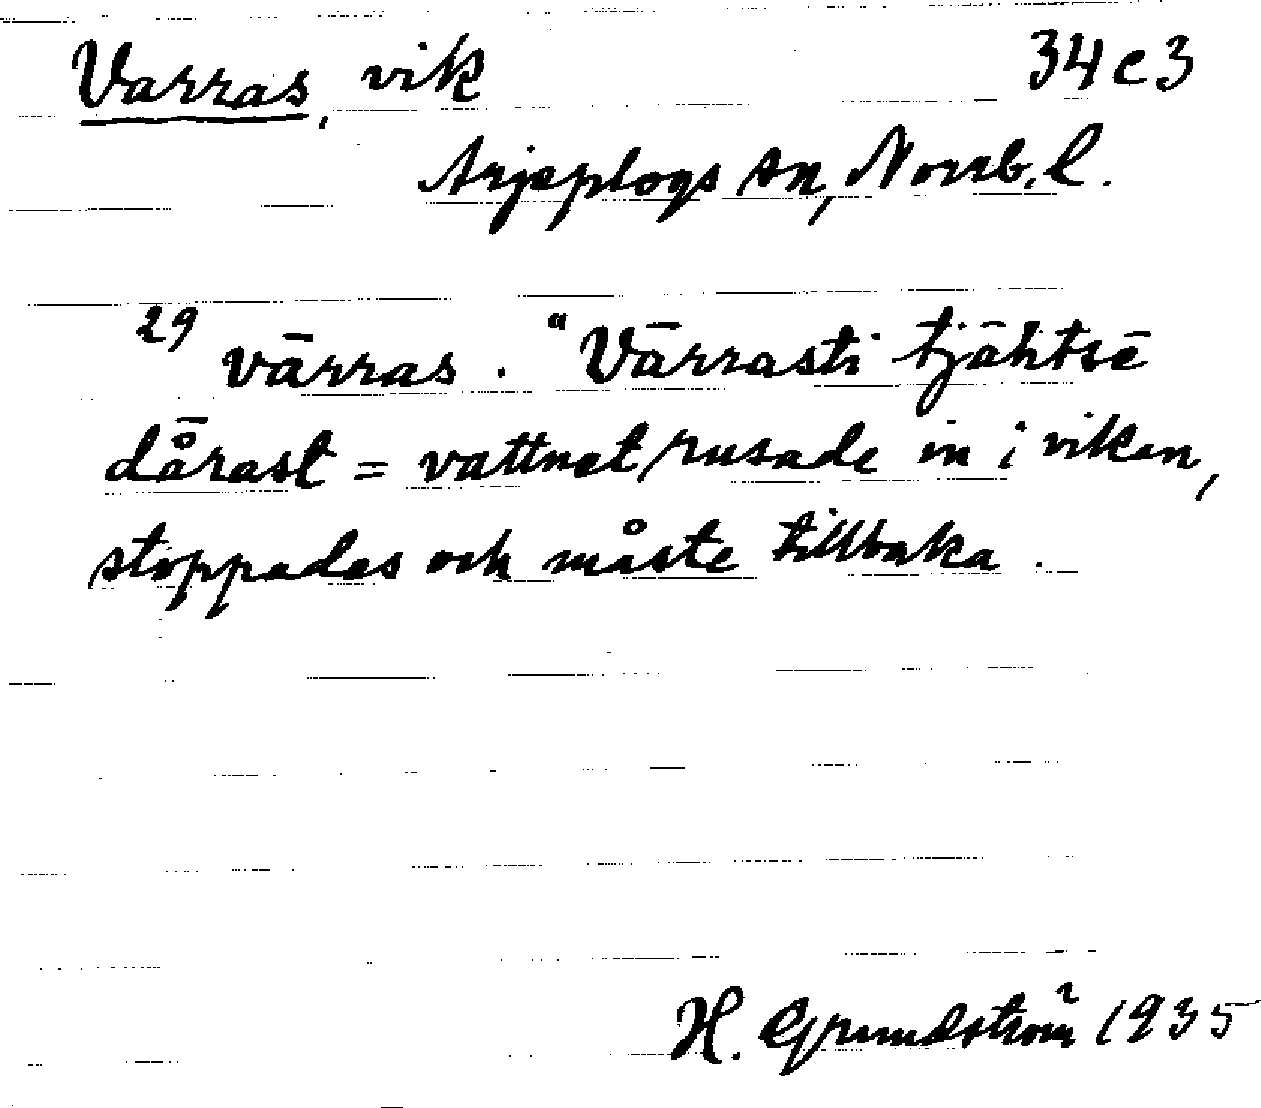 Varras, vik 34 c 3
Arjeplogs sn, Norrb. l.
29 vārras. "Vārrasti tjāhtsē
då̄rast = vattnet rusade in i viken,
stoppades och måste tillbaka.
H. Grundström 1935